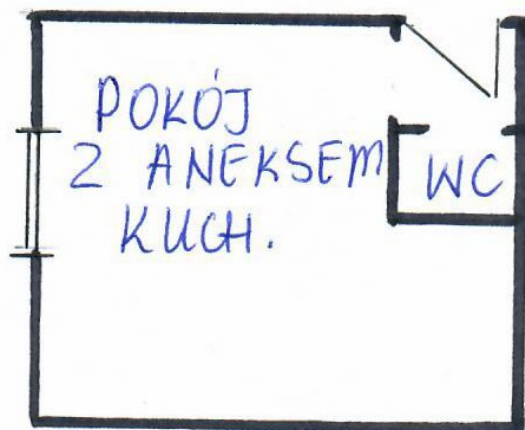 POKÓJ
Z ANEKSEM
KUCH.
WC